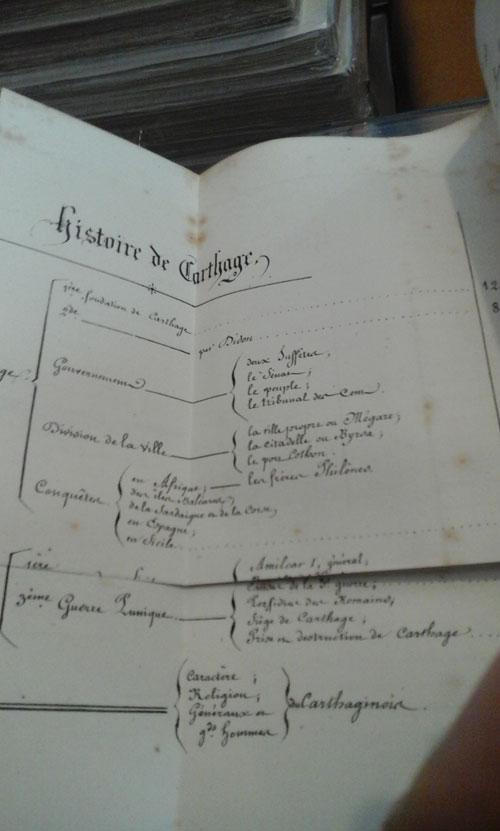 histoire de Carthage,
1ère fondation de Carthage 12
2de par Didon 8
ge.
Gouvernement
deux Suffètes,
le Sénat;
le peuple;
le tribunal des Cent.
Division de la ville
la ville propre ou Mégare;
la citadelle ou Byrsa;
le port Cothon.
Conquêtes
en Afrique; les frères Philènes.
des îles Baléares;
de la Sardaigne et de la Corse;
en Espagne;
en Sicile
1ère
Amilcar 1, général;
3ème Guerre Punique
de la 3e guerre;
Perfidie des Romains;
Siège de Carthage;
Prise et destruction de Carthage
Caractère;
Religion;
Généraux et
gds hommes
des Carthaginois.